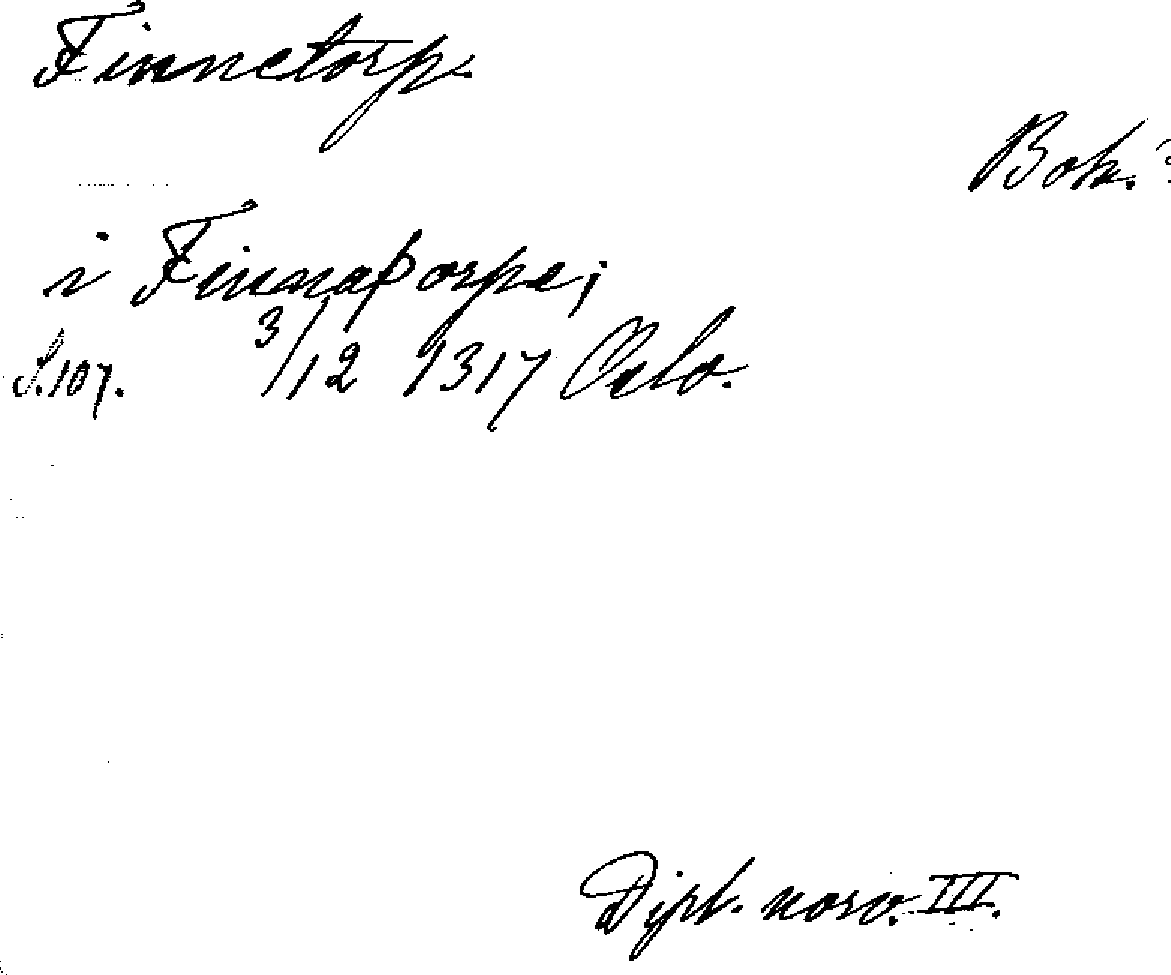 Finnetorp.
Boh.
i Finnaþorpe;
S. 107. 3/12 1317 Oslo.
Dipl. norv. III.